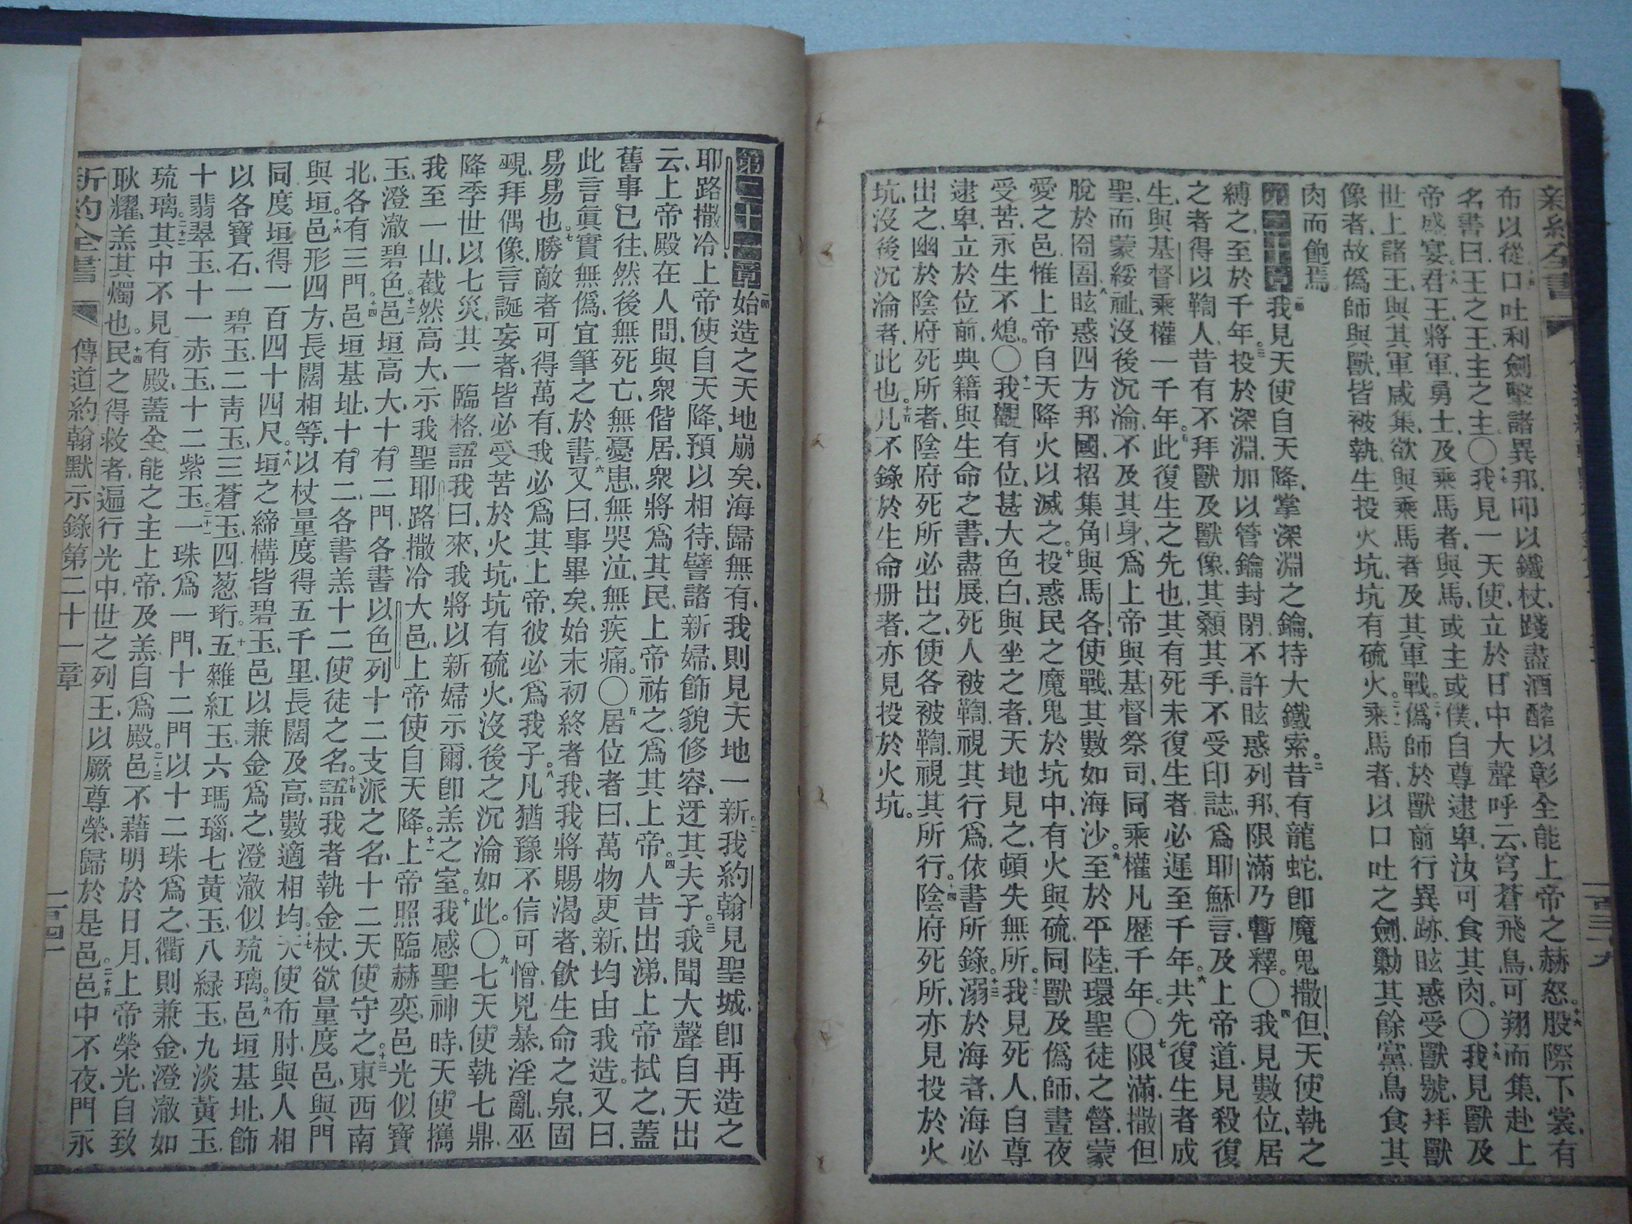 新約全書
一百三十九
布以從口吐利劍擊諸異邦卬以鐵杖踐盡酒醡以彰全能上帝之赫怒股際下裳有
名書曰王之王主之主〇我見一天使立於日中大聲呼云穹蒼飛鳥可翔而集赴上
帝盛宴君王將軍勇士及乘馬者與馬或主或僕自尊逮卑汝可食其肉〇我見獸及
世上諸王與其軍咸集欲與乘馬者及其軍戰僞師於獸前行異跡眩惑受獸號拜獸
像者故僞師與獸皆被執生投火坑坑有硫火乘馬者以口吐之劍勦其餘黨鳥食其
肉而飽焉
第二十章我見天使自天降掌深淵之鑰持大鐵索昔有龍蛇卽魔鬼撒但天使執之
縛之至於千年投於深淵加以管鑰封閉不許眩惑列邦限滿乃暫釋〇我見數位居
之者得以鞫人昔有不拜獸及獸像其顙其手不受印誌爲耶穌言及上帝道見殺復
生與基督乘權一千年此復生之先也其有死未復生者必遲至千年共先復生者成
聖而蒙綏祉沒後沉淪不及其身爲上帝與基督祭司同乘權凡歷千年〇限滿撒但
脫於囹圄眩惑四方邦國招集角與馬各使戰其數如海沙至於平陸環聖徒之營蒙
愛之邑惟上帝自天降火以滅之投惑民之魔鬼於坑中有火與硫同獸及僞師晝夜
受苦永生不熄〇我觀有位甚大色白與坐之者天地見之頓失無所我見死人自尊
逮卑立於位前典籍與生命之書盡展死人被鞫視其行爲依書所錄溺於海者海必
出之幽於陰府死所者陰府死所必出之使各被鞫視其所行陰府死所亦見投於火
坑沒後沉淪者此也凡不錄於生命册者亦見投於火坑
第二十一章始造之天地崩矣海歸無有我則見天地一新我約翰見聖城卽再造之
耶路撒冷上帝使自天降預以相待譬諸新婦飾貌修容迓其夫子我聞大聲自天出
云上帝殿在人間與衆偕居衆將爲其民上帝祐之爲其上帝人昔出涕上帝拭之蓋
舊事已往然後無死亡無憂患無哭泣無疾痛〇居位者曰萬物更新均由我造又曰
此言眞實無僞宜筆之於書又曰事畢矣始末初終者我我將賜渴者飲生命之泉固
易易也勝敵者可得萬有我必爲其上帝彼必爲我子凡猶豫不信可憎兇暴淫亂巫
覡拜偶像言誕妄者皆必受苦於火坑坑有硫火沒後之沉淪如此〇七天使執七鼎
降季世以七災其一臨格語我曰來我將以新婦示爾卽羔之室我感聖神時天使擕
我至一山截然高大示我聖耶路撒冷大邑上帝使自天降上帝照臨赫奕邑光似寶
玉澄澈碧色邑垣高大十有二門各書以色列十二支派之名十二天使守之東西南
北各有三門邑垣基址十有二各書羔十二使徒之名語我者執金杖欲量度邑與門
與垣邑形四方長闊相等以杖量度得五千里長闊及高數適相均天使布肘與人相
同度垣得一百四十四尺垣之締構皆碧玉邑以兼金爲之澄澈似琉璃邑垣基址飾
以各寶石一碧玉二靑玉三蒼玉四葱珩五雜紅玉六瑪瑙七黃玉八綠玉九淡黃玉
十翡翠玉十一赤玉十二紫玉一珠爲一門十二門以十二珠爲之衢則兼金澄澈如
琉璃其中不見有殿蓋全能之主上帝及羔自爲殿邑不藉明於日月上帝榮光自致
耿耀羔其燭也民之得救者遍行光中世之列王以厥尊榮歸於是邑邑中不夜門永
新約全書 傳道約翰默示錄第二十一章 一百四十